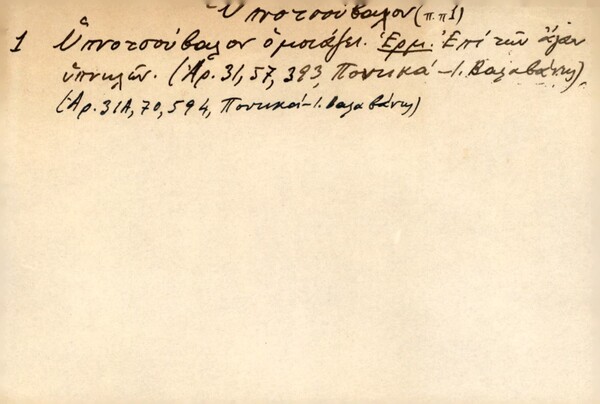 Ὑπνοτσούβαλον (π.π1)
1 Ὑπνοτσούβαλον ὁμοιάζει. Ἑρμ. Ἐπὶ τῶν ἄγαν
ὑπνηλῶν. (Ἀρ. 31, 57, 393, Ποντικά - Ι. Βαλαβάνης)
(Ἀρ. 31Α, 70, 594, Ποντικά - Ι. Βαλαβάνης)